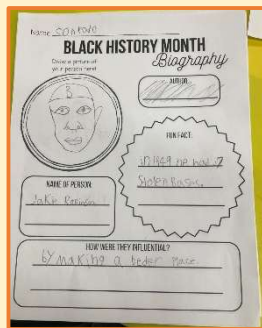 Name
BLACK HISTORY MONTH
Biography
Draw a picture of
your person here!
AUTHOR:
FUN FACT:
in 1949 he had 37
Stolen bases.
NAME OF PERSON:
Jakie Robinson
HOW WERE THEY INFLUENTIAL?
by making a beder place.